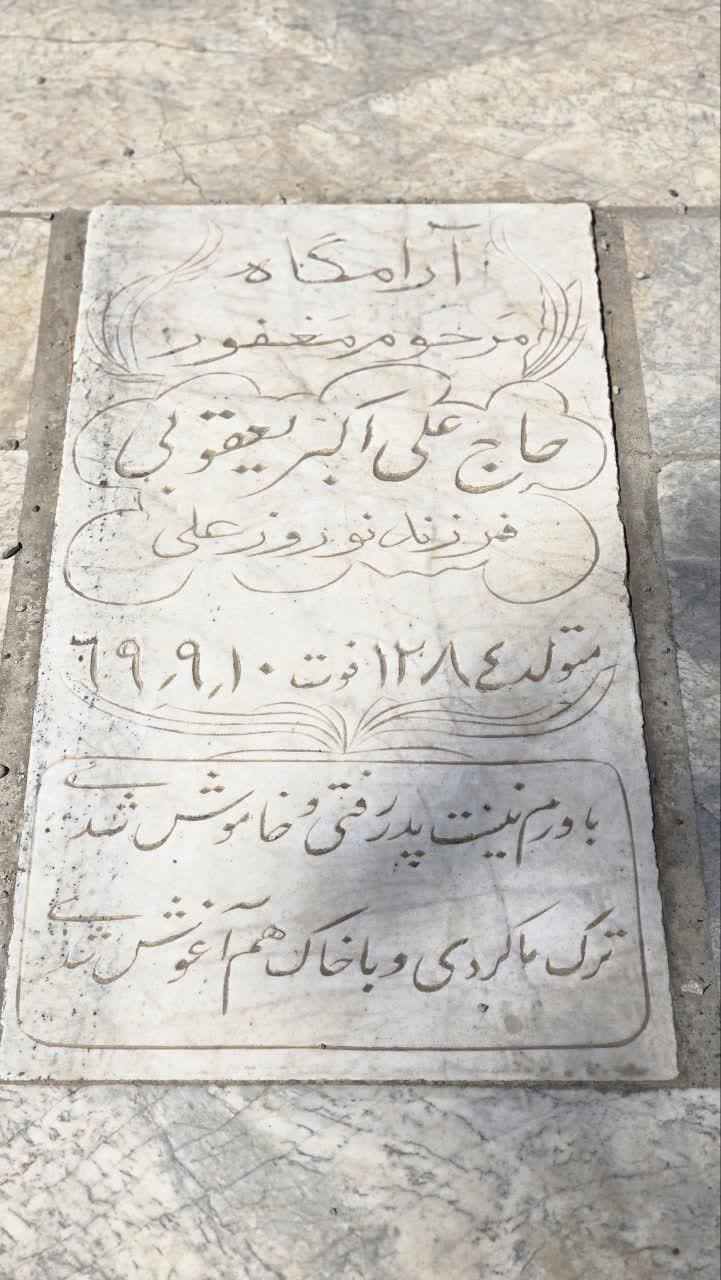 آرامگاه
مرحوم مغفور
حاج علی اکبر یعقوبی
فرزند نوروز علی
متولد ١٢٨٤ فوت ١٠٫٩٫٦٩
باورم نیست پدر رفتی و خاموش شدی
ترک ما کردی و با خاک هم آغوش شدی